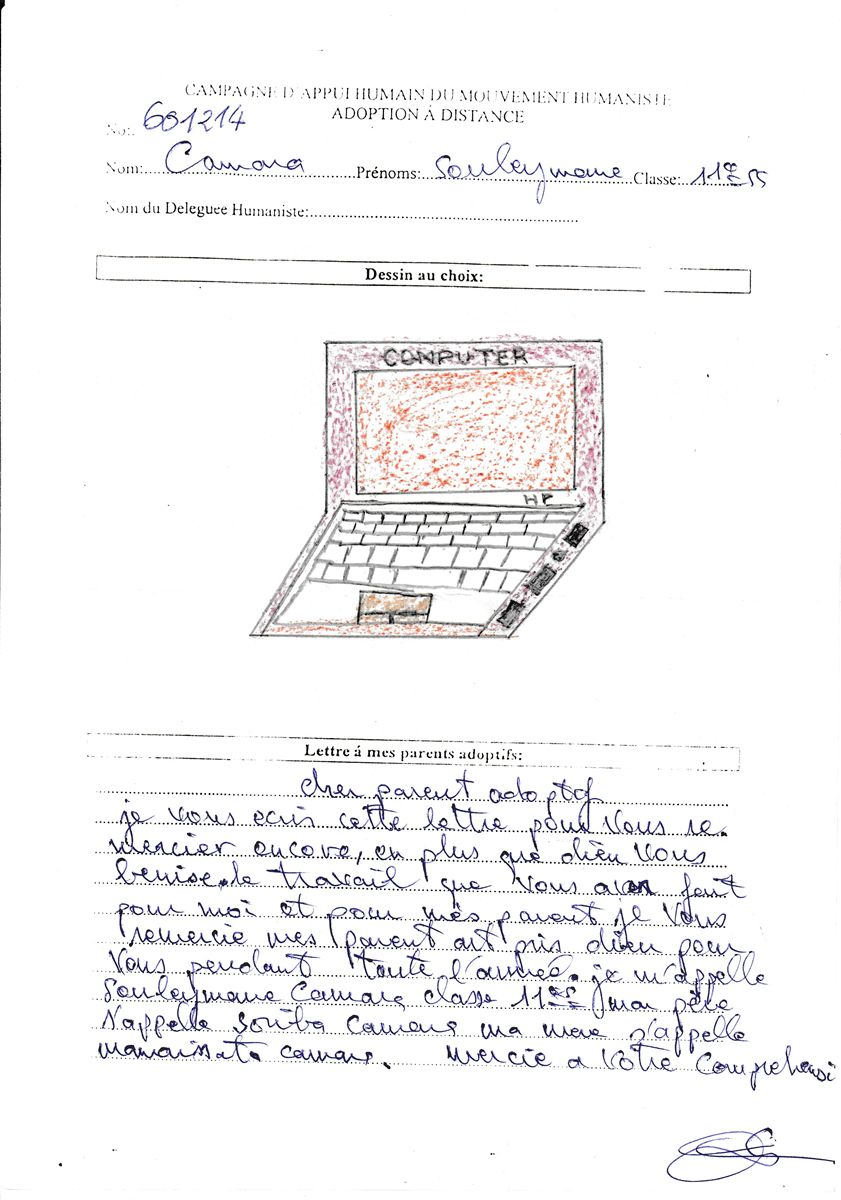 CAMPAGNE D'APPUI HUMAIN DU MOUVEMENT HUMANISTE
ADOPTION Á DISTANCE
No:. 601214
Nom: Camara Prénoms: Souleymane Classe: 11e SS
Nom du Deleguee Humaniste:
Dessin au choix:
COMPUTER
HP
Lettre á mes parents adoptifs:
cher parent adoptif
je vous ecris cette lettre pour vous re-
mercier encore, en plus que dieu vous
benise. le travail que vous avez fait
pour moi et pour mes parent je vous
remercie mes parent ont pris dieu pour
vous pendant toute l'année. je m'appelle
Souleymane Camara classe 11e SS mon père
s'appelle Soriba Camara ma mere s'appelle
camara. mercie a votre Comprehensi